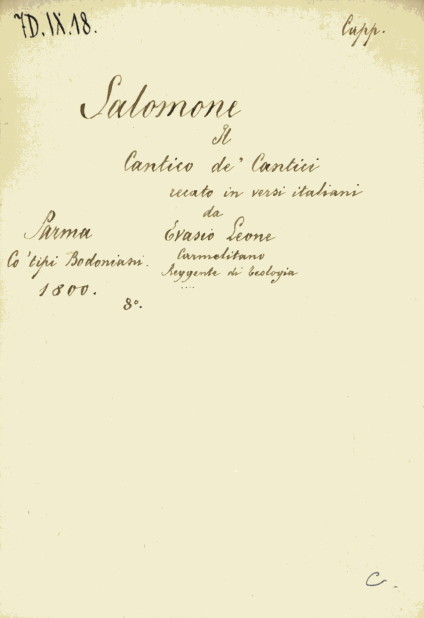 7D.IX.18.
Capp.
Salomone
Il
Cantico de' Cantici
recato in versi italiani
da
Evasio Leone
Carmelitano
Reggente di teologia
....
Parma
Co' tipi Bodoniani.
1800.
8°.
C.